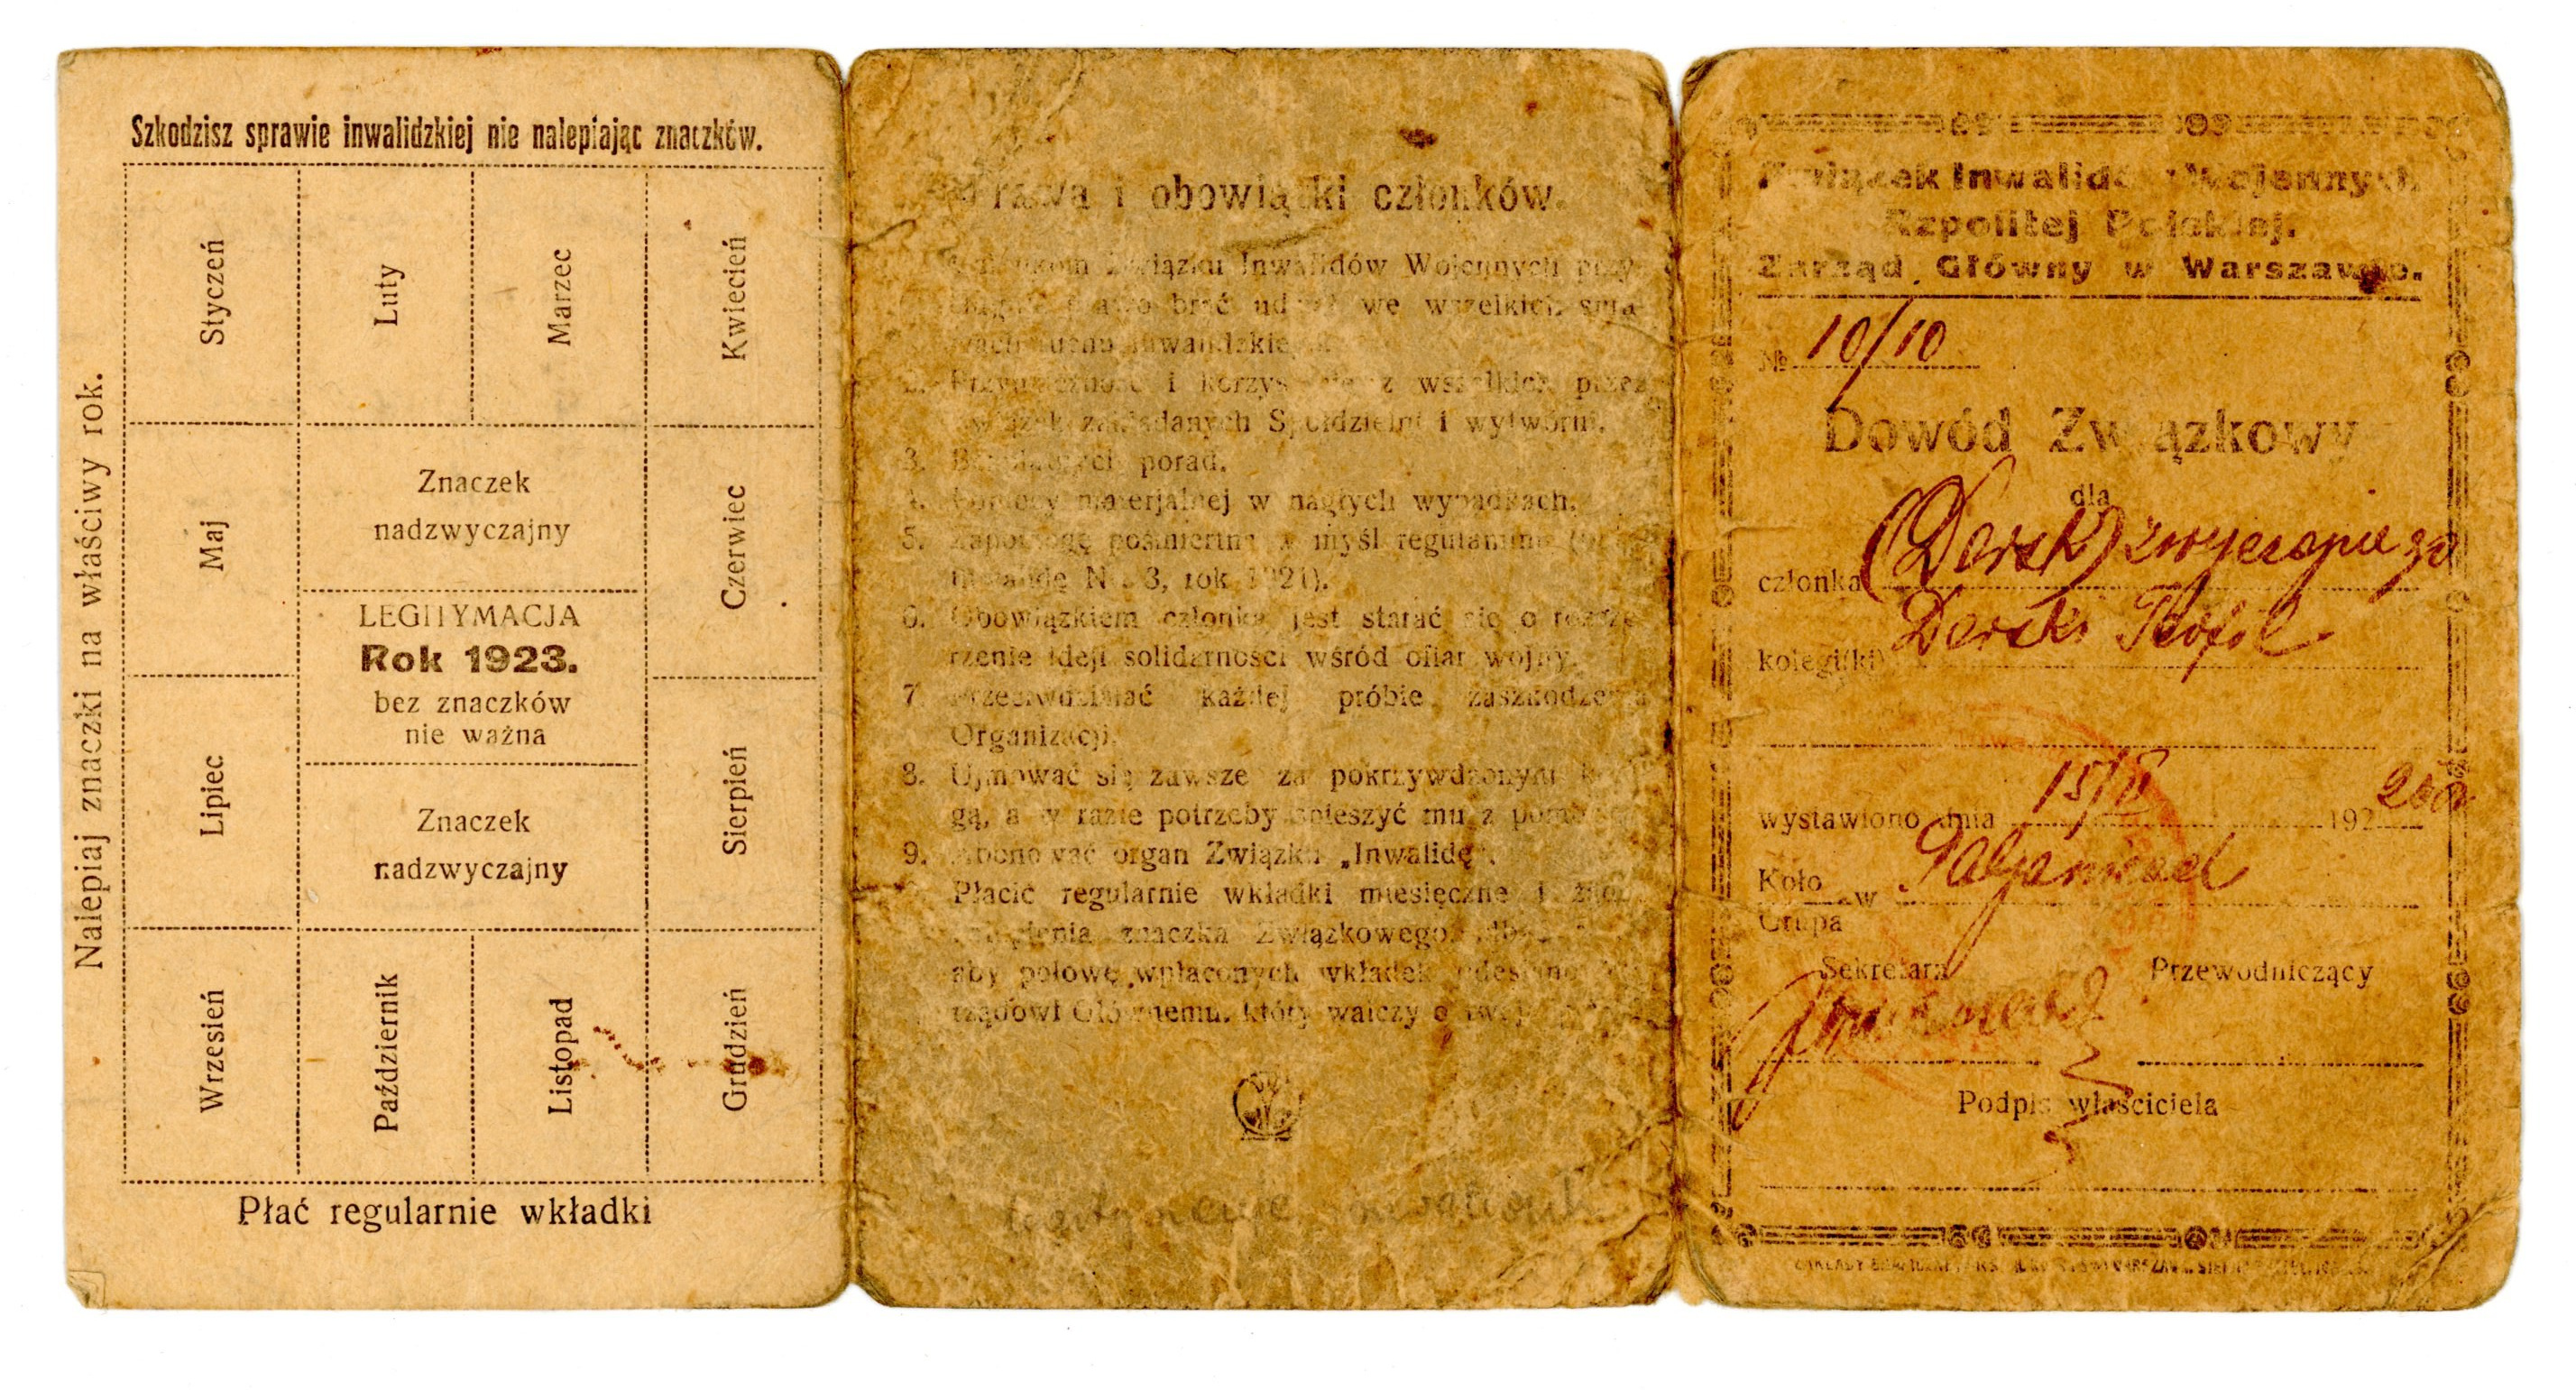 Szkodzisz sprawie inwalidzkiej nie nalepiając znaczków.
Nalepiaj znaczki na właściwy rok.
Styczeń
Luty
Marzec
Kwiecień
Maj
Znaczek
nadzwyczajny
Czerwiec
LEGITYMACJA
Rok 1923.
bez znaczków
nie ważna
Lipiec
Znaczek
nadzwyczajny
Sierpień
Wrzesień
Październik
Listopad
Grudzień
Płać regularnie wkładki
Prawa i obowiązki członków.
Członkom Związku Inwalidów Wojennych przy-
prawo brać udział we wszelkich spra-
wach ruchu inwalidzkiego.
2. i korzystanie z wszelkich przez
Związek zakładanych Spółdzielni i wytwórni.
3. Bezpłatnych porad.
4. Pomocy materjalnej w nagłych wypadkach.
5. Zapomogę pośmiertną w myśl regulaminu
No 3, rok 1921).
6. Obowiązkiem członka jest starać się o rozsze-
rzenie ideji solidarności wśród ofiar wojny.
7. Przeciwdziałać każdej próbie zaszkodzenia
Organizacji.
8. Ujmować się zawsze za pokrzywdzonym kole-
gą, a w razie potrzeby spieszyć mu z pomocą.
9. Abonować organ Związku „Inwalidę".
Płacić regularnie wkładki miesięczne i
znaczka Związkowego,
aby połowę wpłaconych wkładek
rządowi Głównemu, który walczy o
Związek Inwalidów Wojennych
Rzpolitej Polskiej.
Zarząd Główny w Warszawie.
№ 10/10
Dowód Związkowy
dla
członka (Derski) zwyczajnego
kolegi(ki) Derski Teofil
wystawiono dnia 15/8 192
Koło w Pabjanicach
Grupa
Sekretarz Przewodniczący
Podpis właściciela